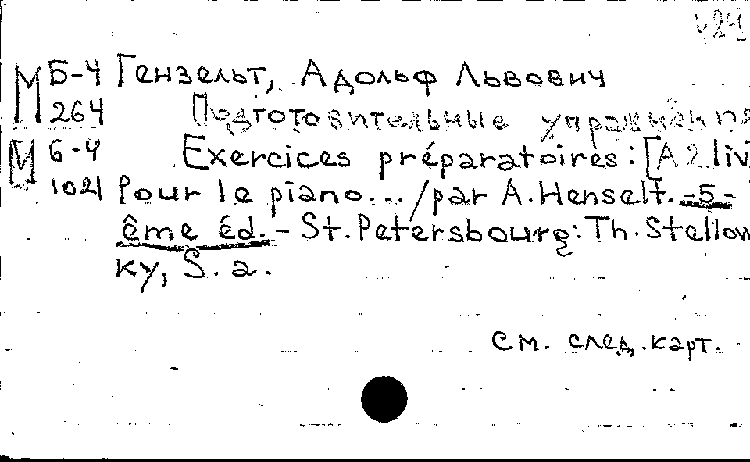 М Б-4 Гензельт, Адольф Львович
264 Подготовительные упражнения
М Б-4 Exercices préparatoires: [A 2 liv
1021 Pour le piano... / par A. Henselt. -5-
ême éd. - St. Petersbourg: Th. Stellow
ky, S. a.
см. след. карт.